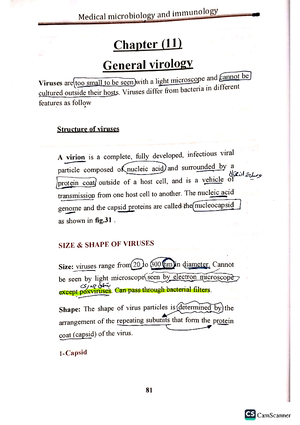 Medical microbiology and immunology
Chapter (11)
General virology
Viruses are too small to be seen with a light microscope and cannot be
cultured outside their hosts. Viruses differ from bacteria in different
features as follow
Structure of viruses
A virion is a complete, fully developed, infectious viral
particle composed of nucleic acid and surrounded by a
protein coat outside of a host cell, and is a vehicle of
transmission from one host cell to another. The nucleic acid
genome and the capsid proteins are called the nucleocapsid
as shown in fig.31 .
SIZE & SHAPE OF VIRUSES
Size: viruses range from 20 to 300 nm in diameter. Cannot
be seen by light microscope, seen by electron microscope
except poxviruses. Can pass through bacterial filters.
Shape: The shape of virus particles is determined by the
arrangement of the repeating subunits that form the protein
coat (capsid) of the virus.
1-Capsid
81
CS CamScanner